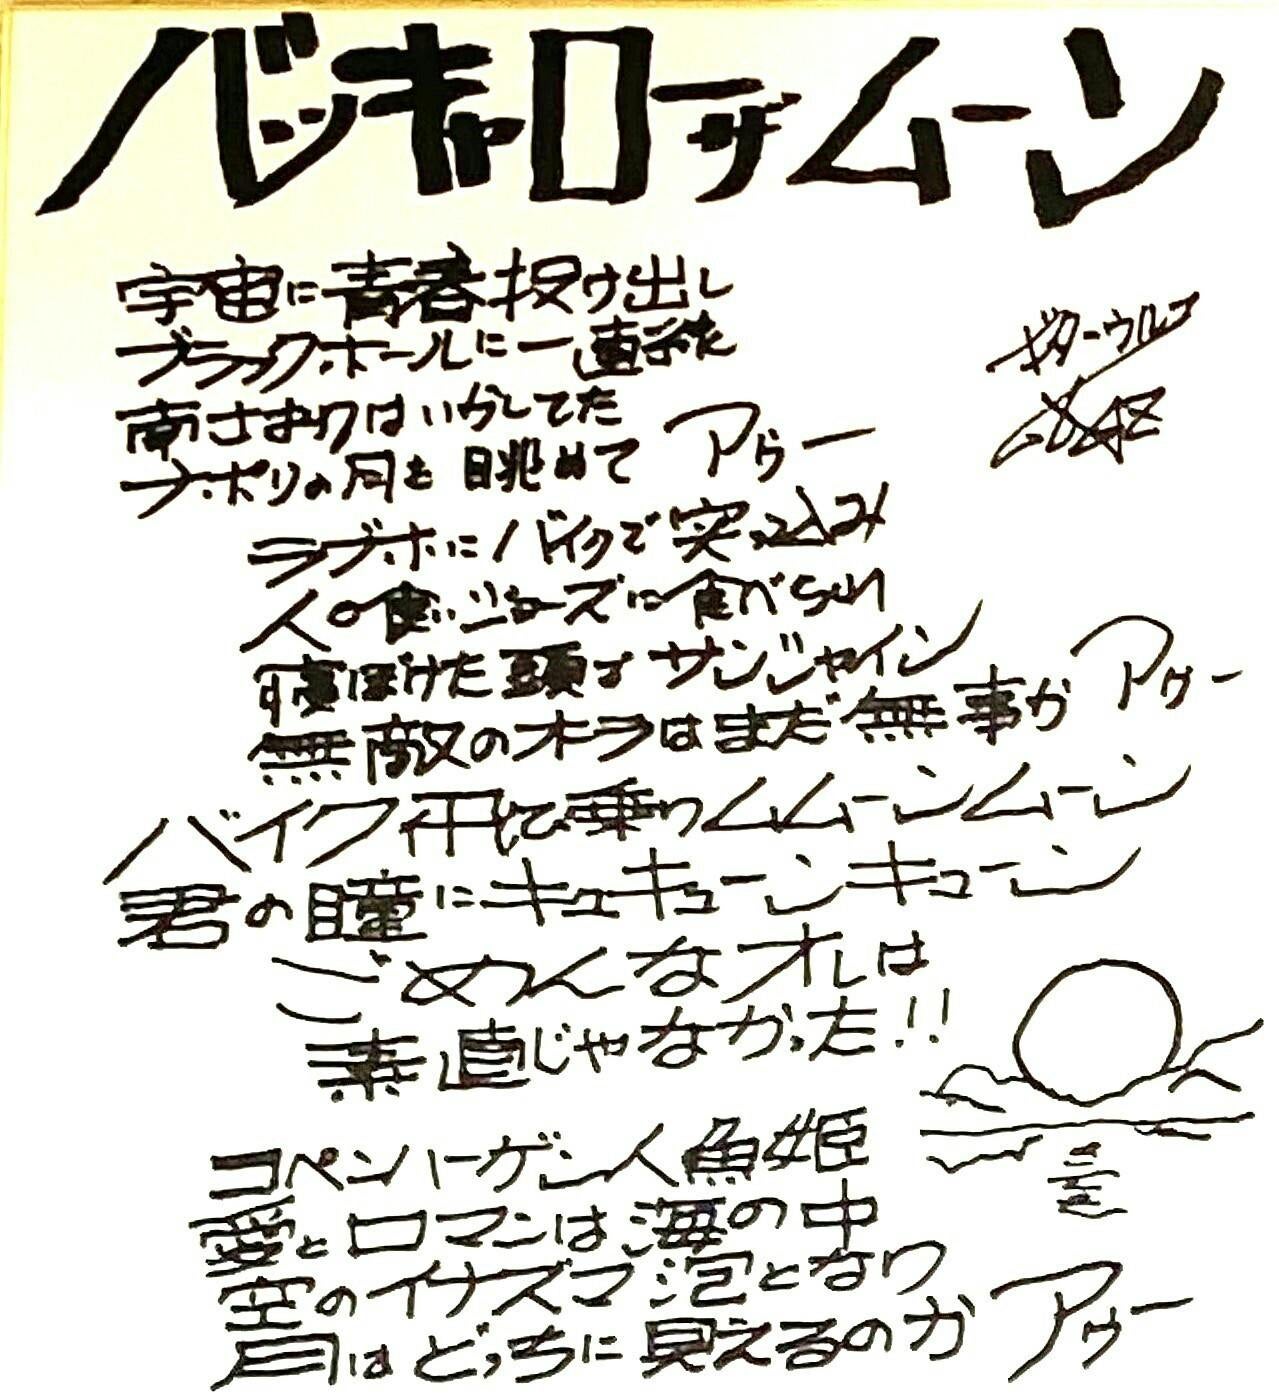 バッキャローザムーン
宇宙に青春投げ出し
ブラックホールに一直線だ
南さまりはいかしてた
ナポリの月を眺めて アゥー
ギターウルフ
ラブホにバイクで突っ込み
人食いジョーズに食べられ
寝ぼけた頭でサンシャイン
無敵のオラはまだ無事か アゥー
バイク飛び乗りムムーンムーン
君の瞳にキュキューンキューン
ごめんなオレは
素直じゃなかった!!
コペンハーゲン人魚姫
愛とロマンは海の中
空のイナズマ泡となり
月はどっちに見えるのか アゥー